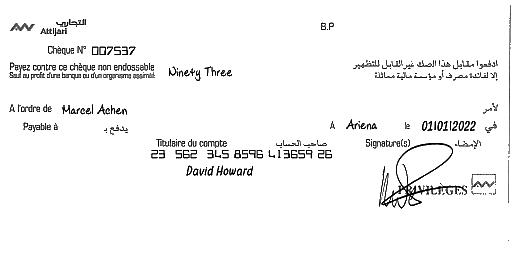 التجاري
Attijari
B.P
Chèque N° 007537
Payez contre ce chèque non endossable
Sauf au profit d'une banque ou d'un organisme assimilé
Ninety Three
ادفعوا مقابل هذا الصك غير القابل للتظهير
إلا لفائدة مصرف أو مؤسسة مالية مماثلة
A l'ordre de Marcel Achen لأمر
Payable à يدفع بـ
A Ariena le 01/01/2022 في
Titulaire du compte صاحب الحساب Signature(s) الإمضاء
23 562 345 8596 413659 26
David Howard
PRIVILÈGES